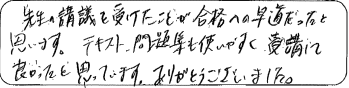 先生の講議を受けたことが合格への早道だったと
思います。テキスト、問題集も使いやすく受講して
良かったと思っています。ありがとうございました。